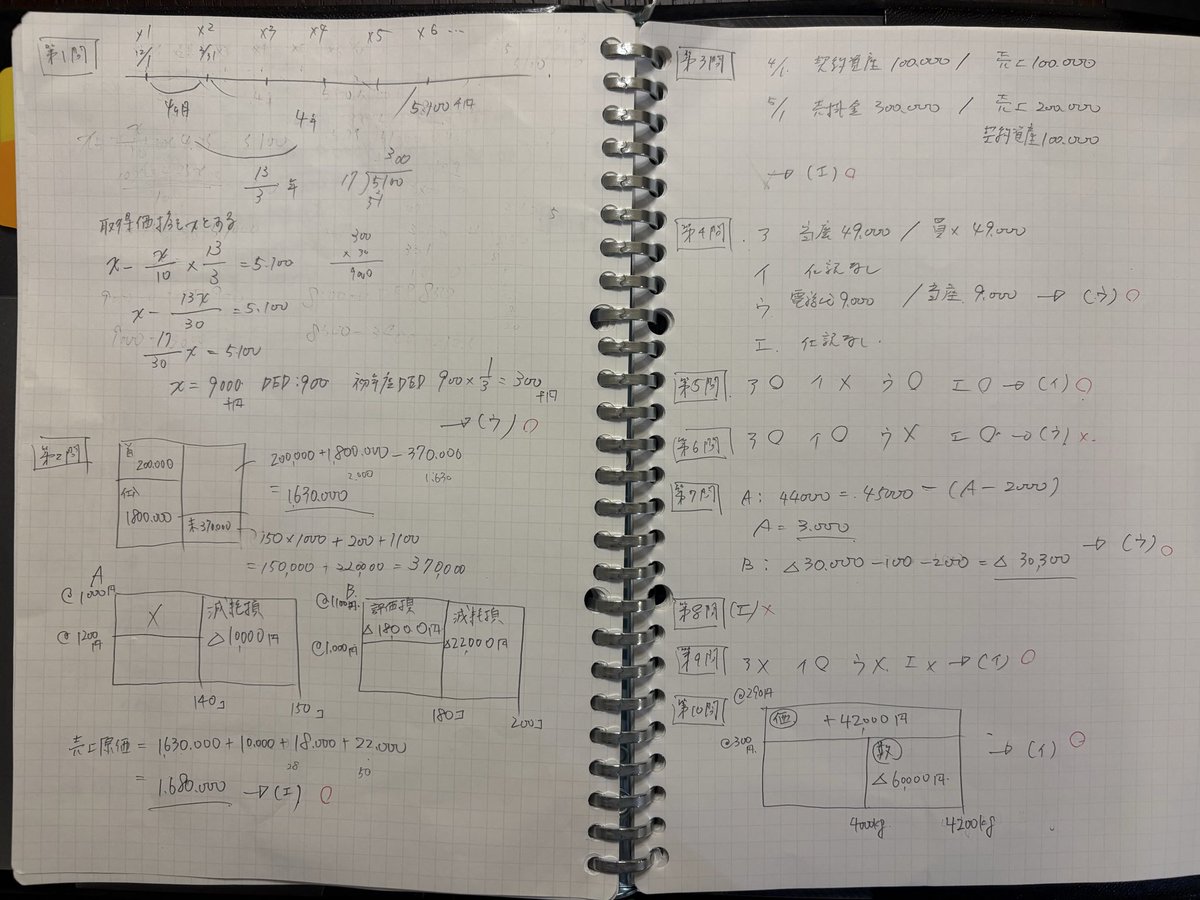 第1問
x1 x2 x3 x4 x5 x6 …
12/1 3/31
4ヶ月 4年 5,100千円
13/3 年
300
17)5100
51
取得価格をxとする
x - x/10 × 13/3 = 5.100
300
×30
9000
x - 13x/30 = 5.100
17/30 x = 5100
x = 9000千円 DED:900 初年度DED 900 × 1/3 = 300千円
→(ウ)○
第2問
首 200.000
仕入 1800.000
末370.000
200,000+1,800.000-370.000
2.000 1.630
= 1,630.000
150×1000+200+1100
=150,000+22,000=370,000
A
@1000円
@1200円
X
減耗損
△10,000円
140コ 150コ
B
@1,100円
@1,000円
評価損
△18000円
減耗損
△22000円
180コ 200コ
売上原価 = 1,630.000+10.000+18.000+22.000
28 50
= 1.680.000 →(エ) ○
第3問
4/1. 契約資産 100.000 / 売上 100.000
5/1 売掛金 300.000 / 売上 200.000
契約資産 100.000
→(エ)○
第4問
ア 当座 49.000 / 買× 49.000
イ 仕訳なし
ウ 電話代 9.000 / 当座 9.000 →(ウ)○
エ. 仕訳なし.
第5問 ア○ イ× ウ○ エ○→(イ)○
第6問 ア○ イ○ ウ× エ○→(ウ)×.
第7問
A: 44000 = 45000 - (A-2000)
A = 3.000
B: △30.000-100-200=△30,300 →(ウ)○
第8問 (エ)×
第9問 ア× イ○ ウ× エ×→(イ)○
第10問
@290円
@300円
価 +42,000円
数
△60000円
4000kg 4200kg
→(イ) ○